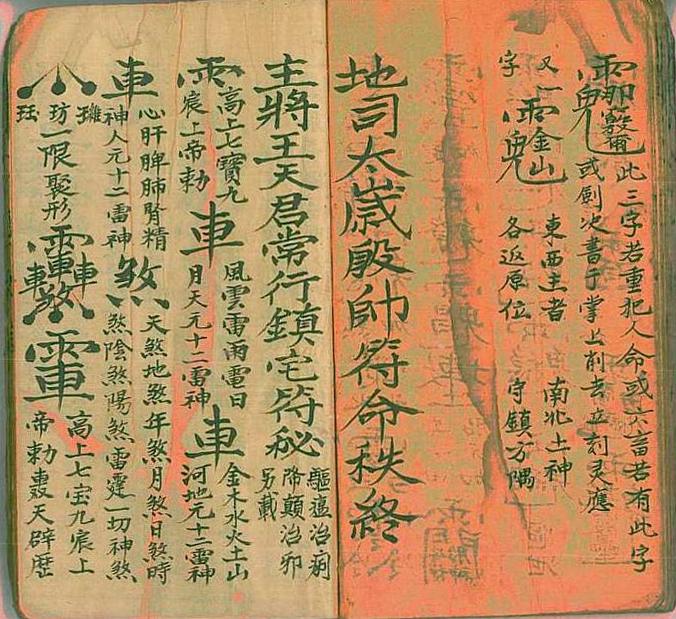 此三字若重犯人命或六畜若有此字
或劍次書于掌上削去立刻灵應
又一字
金山
東西主者 南北土神
各返原位 守鎮方隅
地司太歲殷帥符命秩終
主將王天君常行鎮宅符秘
驅瘟治痢
降顛治邪
另載
高上七寶九
宸上帝勅
車
風雲雷雨電日
月天元十二雷神
車
金木水火土山
河地元十二雷神
車
心肝脾肺腎精
神人元十二雷神
煞
天煞地煞年煞月煞日煞時
煞陰煞陽煞雷霆一切神煞
坊
一限聚形
轟
煞
高上七宝九宸上
帝勅轟天辟歷